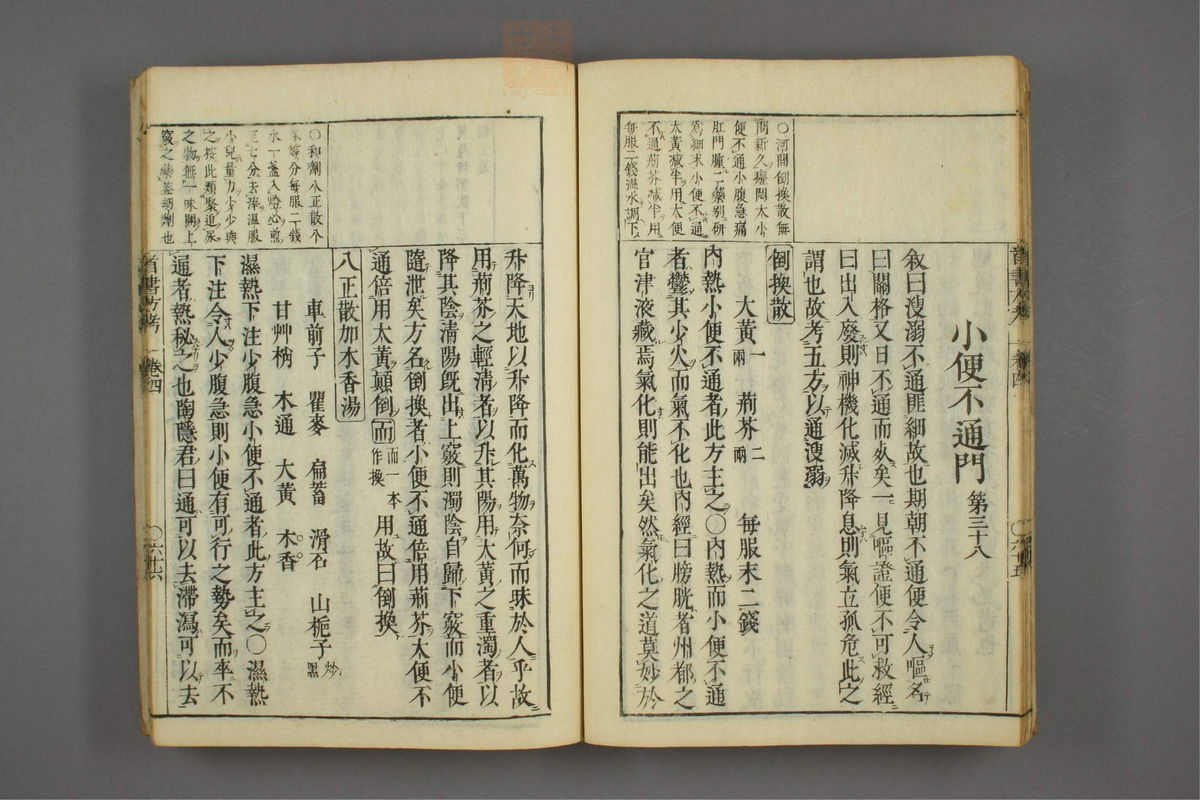 ○河間倒換散無
問新久癃閉大小
便不通小腹急痛
肛門腫二藥別研
爲細末小便不通
大黃減半用大便
不通荊芥減半用
每服二錢溫水調下
小便不通門 第三十八
敘曰溲溺不通匪細故也期朝不通便令人嘔名
曰關格又日不通而死矣一見嘔證便不可救經
曰出入廢則神機化滅升降息則氣立孤危此之
謂也故考五方以通溲溺
倒換散
大黃一兩 荊芥二兩 每服末二錢
內熱小便不通者此方主之○內熱而小便不通
者鬱其少火而氣不化也內經曰膀胱者州都之
官津液藏焉氣化則能出矣然氣化之道莫妙於
醫書方考 卷四
○和劑八正散八
味等分每服二錢
水一盞入燈心煎
至七分去滓溫服
小兒量力少少與
之按此類聚追尿
之物無一味開上
竅之藥蓋劫劑也
升降天地以升降而化萬物奈何而昧於人乎故
用荊芥之輕清者以升其陽用大黃之重濁者以
降其陰清陽既出上竅則濁陰自歸下竅而小便
隨泄矣方名倒換者小便不通倍用荊芥大便不
通倍用大黃顛倒而而一本作換用故曰倒換
八正散加木香湯
車前子 瞿麥 扁蓄 滑石 山梔子炒黑
甘艸梢 木通 大黃 木香
濕熱下注少腹急小便不通者此方主之○濕熱
下注令人少腹急則小便有可行之勢矣而卒不
通者熱秘之也陶隱君曰通可以去滯瀉可以去
卷四